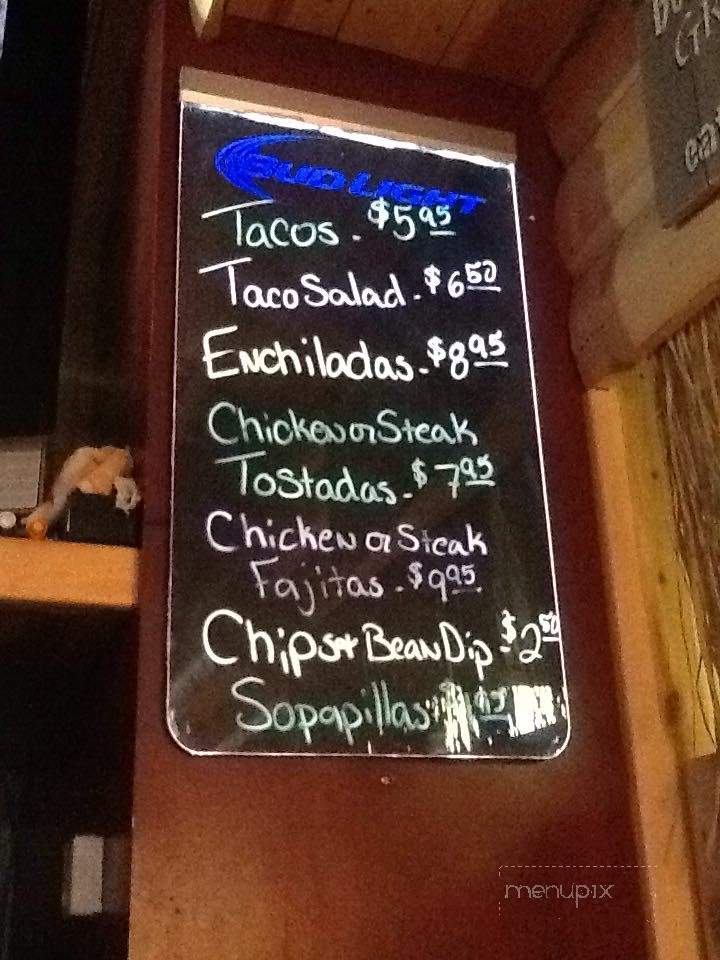 BUD LIGHT
Tacos. $5.95
Taco Salad. $6.50
Enchiladas. $8.95
Chicken or Steak
Tostadas. $7.95
Chicken or Steak
Fajitas. $9.95
Chips + Bean Dip. $2.50
Sopapillas
menupix